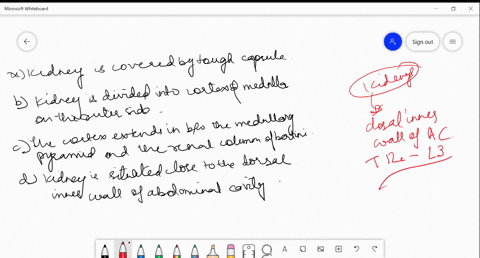 Microsoft Whiteboard
Sign out
a) Kidney is covered by tough capsule
b) Kidney is divided into cortex & medulla
on the outer side.
c) The cortex extends in b/w the medullary
pyramid and the renal column of bertini.
d) Kidney is situated close to the dorsal
inner wall of abdominal cavity
Kidney
dorsal inner
wall of AC
T12 - L3